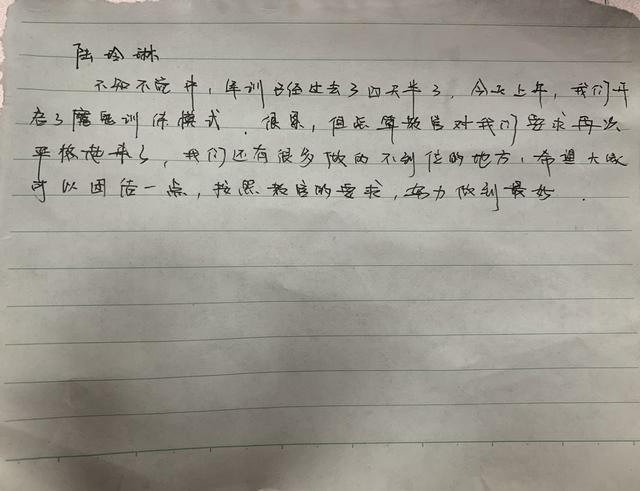 陆玲琳
不知不觉中，军训已经过去了四天半了，今天上午，我们开
启了魔鬼训练模式．很累，但总算教官对我们要求再次
严格起来了，我们还有很多做的不到位的地方，希望大家
可以团结一点，按照教官的要求，努力做到最好．